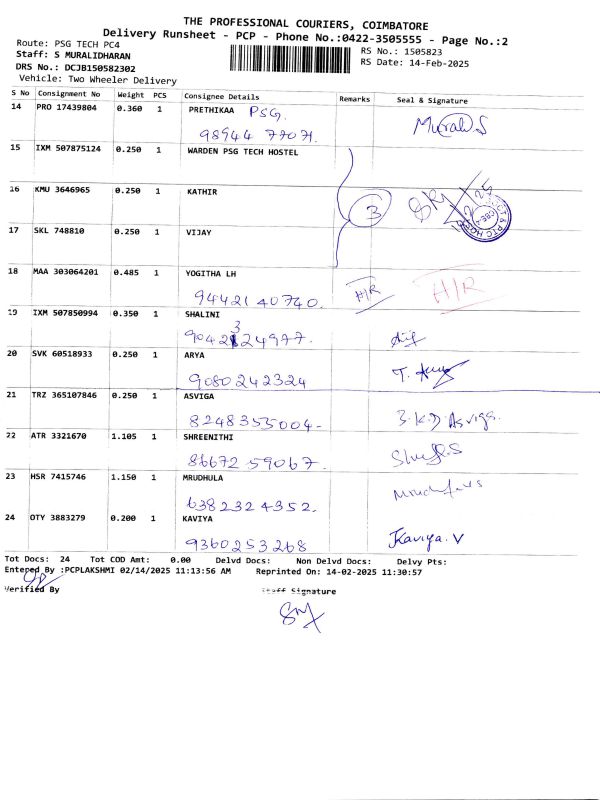 THE PROFESSIONAL COURIERS, COIMBATORE
Delivery Runsheet - PCP - Phone No.:0422-3505555 - Page No.:2
Route: PSG TECH PC4
Staff: S MURALIDHARAN
DRS No.: DCJB150582302
Vehicle: Two Wheeler Delivery
RS No.: 1505823
RS Date: 14-Feb-2025
S No Consignment No Weight PCS Consignee Details Remarks Seal & Signature
14 PRO 17439804 0.360 1 PRETHIKAA PSG.
98944 77071.
15 IXM 507875124 0.250 1 WARDEN PSG TECH HOSTEL
16 KMU 3646965 0.250 1 KATHIR
3
17 SKL 748810 0.250 1 VIJAY
18 MAA 303064201 0.485 1 YOGITHA LH
9442140740. H/R H/R
19 IXM 507850994 0.350 1 SHALINI
20 SVK 60518933 0.250 1 ARYA
9080242324
21 TRZ 365107846 0.250 1 ASVIGA
8248355004. B.K.D. Asviga.
22 ATR 3321670 1.105 1 SHREENITHI
86672 59067.
23 HSR 7415746 1.150 1 MRUDHULA
6382324352.
24 OTY 3883279 0.200 1 KAVIYA
9360253268 Kaviya. V
Tot Docs: 24 Tot COD Amt: 0.00 Delvd Docs: Non Delvd Docs: Delvy Pts:
Entered By :PCPLAKSHMI 02/14/2025 11:13:56 AM Reprinted On: 14-02-2025 11:30:57
Verified By Staff Signature